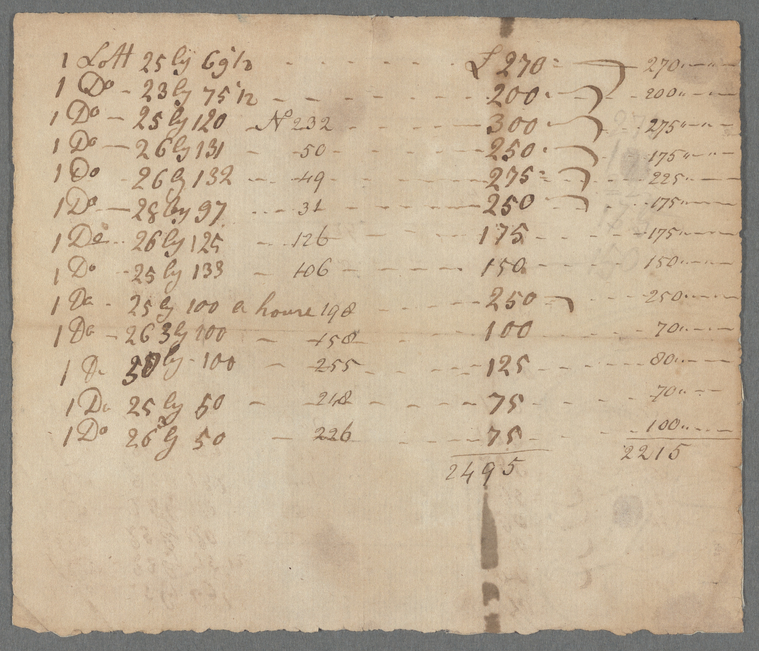 1 Lott 25 by 69 1/2 - - - - £ 270 - 270 " - " -
1 Do - 23 by 75 1/2 - - - - 200 - 200 " - " -
1 Do - 25 by 120 - No 232 - - - 300 - 275 " - " -
1 Do - 26 by 131 - 50 - - - 250 - 175 " - " -
1 Do 26 by 132 - 49 - - - 275 - 225 " - -
1 Do - 28 by 97 - 31 - - - 250 - 175 " - -
1 Do - 26 by 125 - 126 - - - 175 - - - 175 " - -
1 Do - 25 by 133 - 106 - - - 150 - - - 150 " - -
1 Do - 25 by 100 a house 198 - - - 250 - 250 " - -
1 Do - 263 by 100 - 158 - - - 100 - - 70 " - -
1 D - by 100 - 255 - - - 125 - - 80 " - -
1 Do 25 by 50 - 218 - - - 75 - - 70 " - -
1 Do 26 by 50 - 226 - - - 75 - - 100 " - -
2495 2215